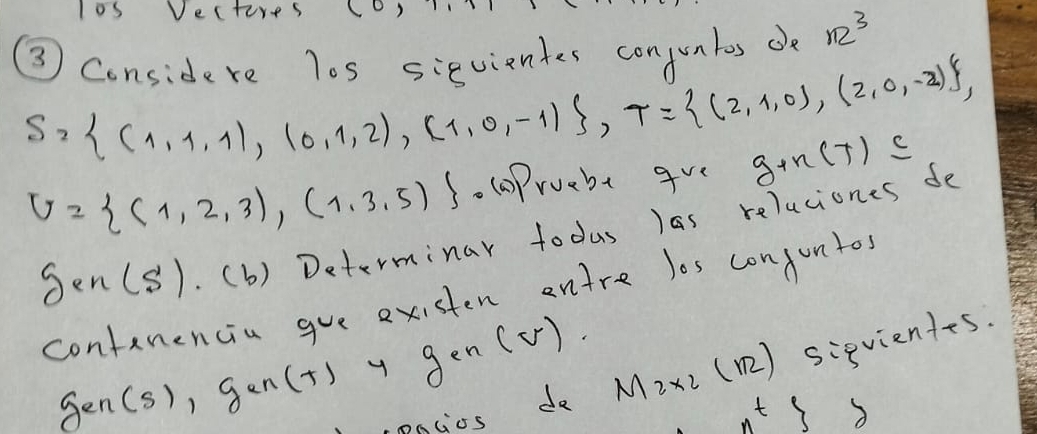 los Vectores (0, 1, 1)
(3) Considere los siguientes conjuntos de R³
S = { (1, 1, 1), (0, 1, 2), (1, 0, -1) }, T = { (2, 1, 0), (2, 0, -2) },
U = { (1, 2, 3), (1, 3, 5) }. (a) Pruebe que gen(T) ⊆
gen(S). (b) Determinar todas las relaciones de
contenencia que existen entre los conjuntos
gen(S), gen(T) y gen(U).
de M2x2 (R) siguientes.